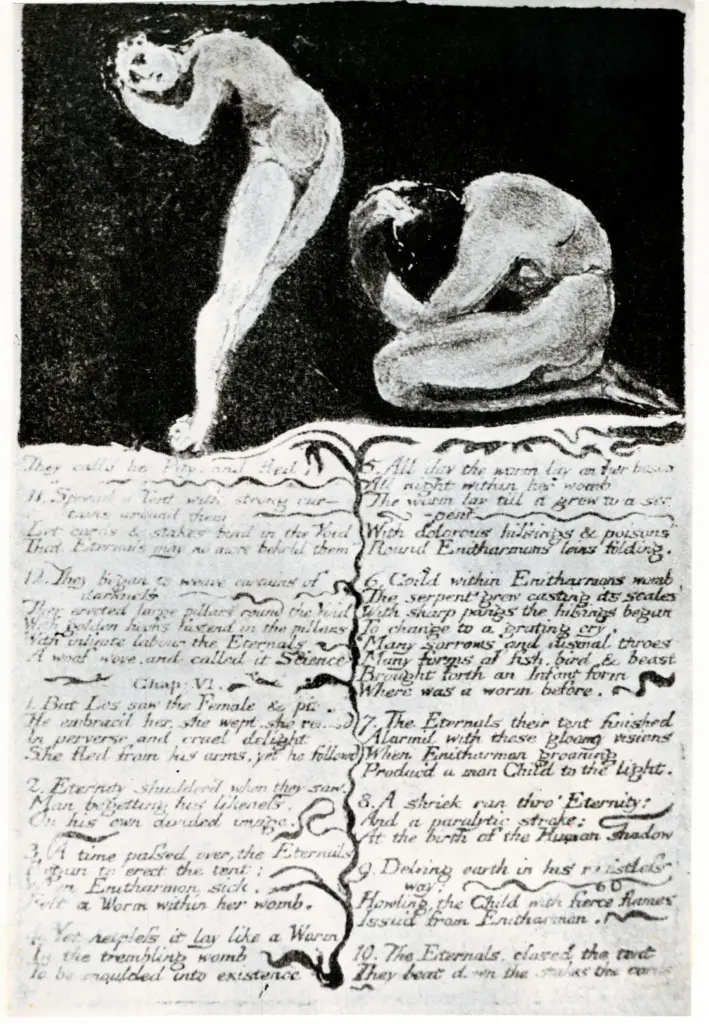 They call'd her Pity, and fled
11. Spread a Tent with strong cur-
tains around them
Let cords & stakes bind in the Void
That Eternals may no more behold them
12. They began to weave curtains of
darkness
They erected large pillars round the Void
With golden hooks fastend in the pillars
With infinite labour the Eternals
A woof wove, and called it Science
Chap: VI.
1. But Los saw the Female &
He embrac'd her, she wept, she
In perverse and cruel delight
She fled from his arms, yet he followd
2. Eternity shudder'd when they saw,
Man begetting his likeness,
On his own divided image.
3. A time passed over, the Eternals
Began to erect the tent;
When Enitharmon sick,
Felt a Worm within her womb.
4. Yet helpless it lay like a Worm
In the trembling womb
To be moulded into existence
5. All day the worm lay on her bosom
All night within her womb
The worm lay till it grew to a ser-
pent
With dolorous hissings & poisons
Round Enitharmons loins folding,
6. Coild within Enitharmons womb
The serpent grew casting its scales
With sharp pangs the hissings began
To change to a grating cry,
Many sorrows and dismal throes
Many forms of fish, bird & beast
Brought forth an Infant form
Where was a worm before.
7. The Eternals their tent finished
Alarm'd with these gloomy visions
When Enitharmon groaning
Produc'd a man Child to the light.
8. A shriek ran thro' Eternity:
And a paralytic stroke;
At the birth of the Human shadow
9. Delving earth in his resistless
way;
Howling, the Child with fierce flames
Issu'd from Enitharmon.
10. The Eternals, closed the tent
They beat down the stakes the cords